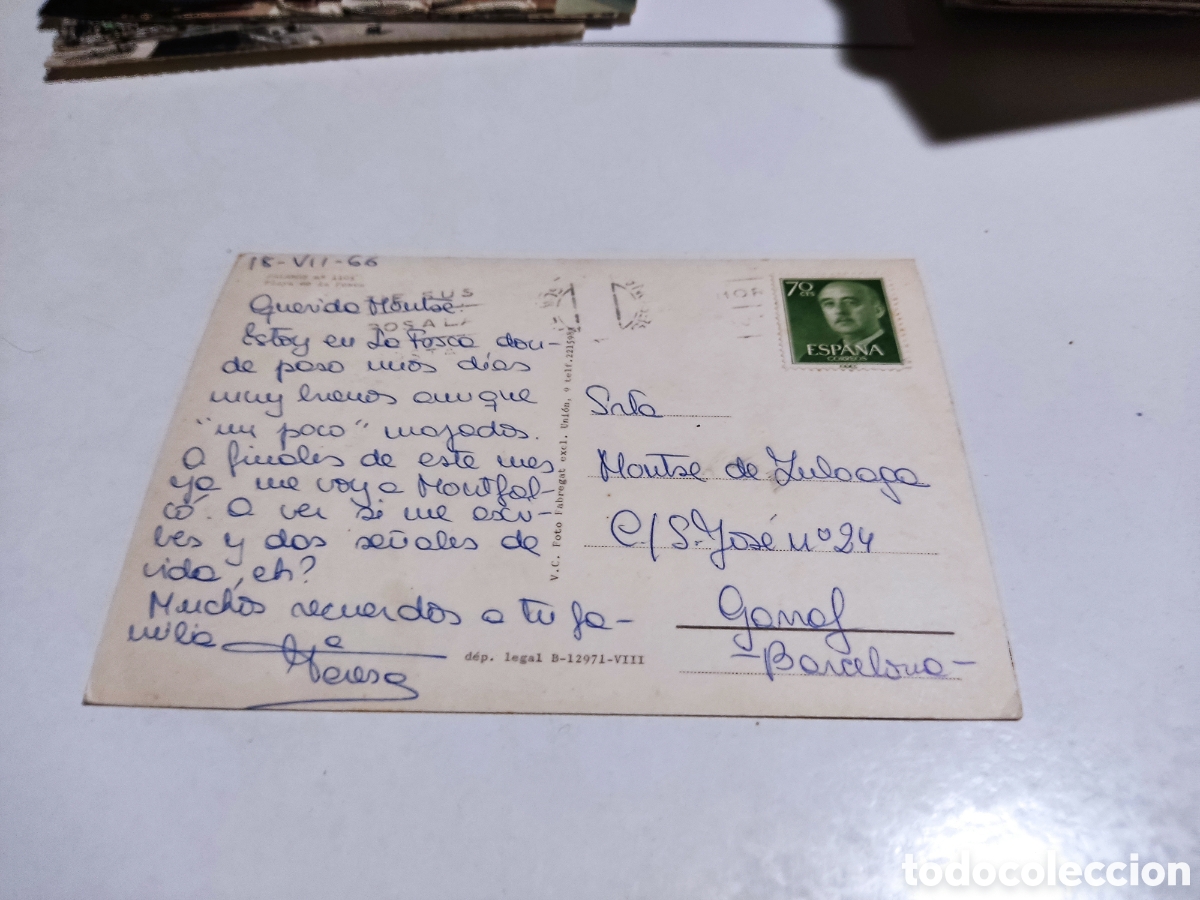 18-VII-66
Playa de La Fosca
Querida Montse:
Estoy en La Fosca don-
de paso unos días
muy buenos aunque
"un poco" mojados.
A finales de este mes
ya me voy a Montfal-
có. A ver si me escri-
bes y das señales de
vida, eh?
Muchos recuerdos a tu fa-
milia
Mª Teresa
V.C. Foto Fabregat excl. Unión, 9 telf.
dép. legal B-12971-VIII
70 CTS
ESPAÑA
CORREOS
Srta
Montse de Zuloaga
C/ S. José nº 24
Garraf
-Barcelona-
todocoleccion